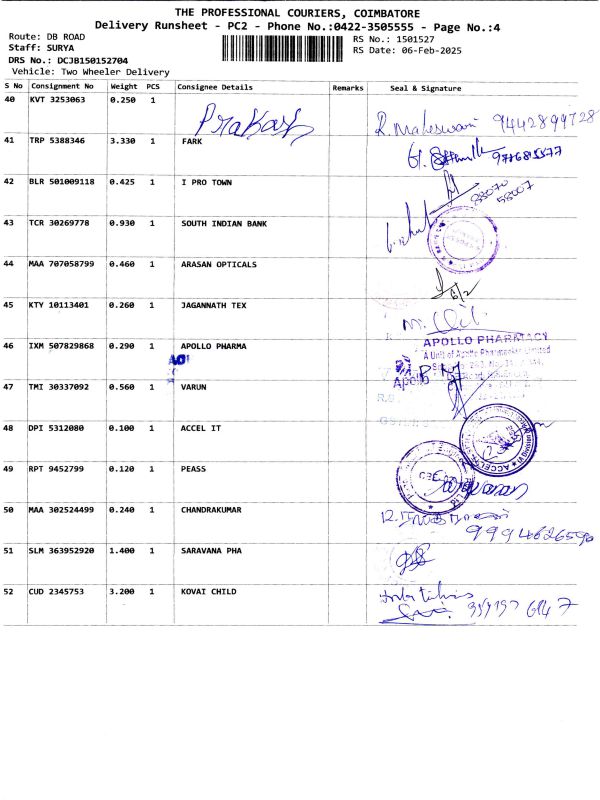 THE PROFESSIONAL COURIERS, COIMBATORE
Delivery Runsheet - PC2 - Phone No.:0422-3505555 - Page No.:4
Route: DB ROAD
Staff: SURYA
DRS No.: DCJB150152704
Vehicle: Two Wheeler Delivery
RS No.: 1501527
RS Date: 06-Feb-2025
S No Consignment No Weight PCS Consignee Details Remarks Seal & Signature
40 KVT 3253063 0.250 1 Prakash R. Maheswari 9442899728
41 TRP 5388346 3.330 1 FARK
42 BLR 501009118 0.425 1 I PRO TOWN 88070 58007
43 TCR 30269778 0.930 1 SOUTH INDIAN BANK
44 MAA 707058799 0.460 1 ARASAN OPTICALS 6/2
45 KTY 10113401 0.260 1 JAGANNATH TEX
46 IXM 507829868 0.290 1 APOLLO PHARMA APOLLO PHARMACY
A Unit of Apollo Pharmacies Limited
Apollo
47 TMI 30337092 0.560 1 VARUN
48 DPI 5312080 0.100 1 ACCEL IT
49 RPT 9452799 0.120 1 PEASS
50 MAA 302524499 0.240 1 CHANDRAKUMAR
9994626590
51 SLM 363952920 1.400 1 SARAVANA PHA
52 CUD 2345753 3.200 1 KOVAI CHILD